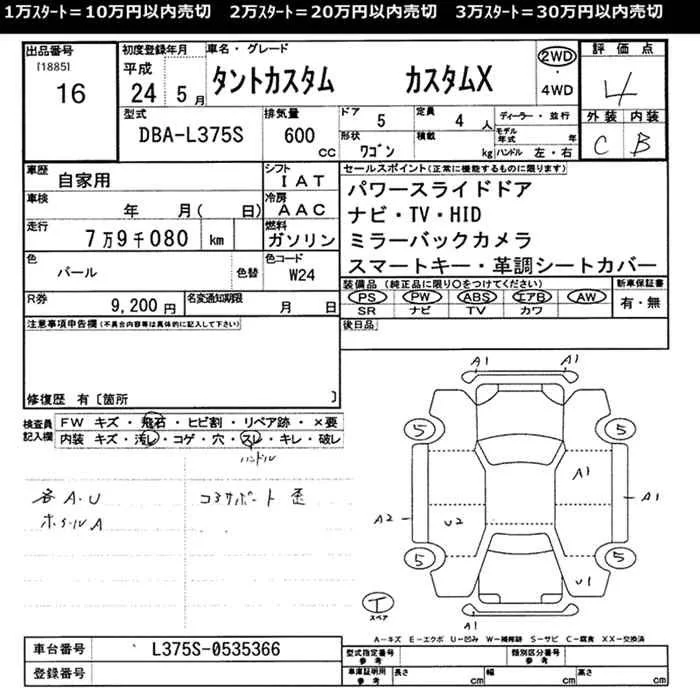 1万ｽﾀｰﾄ＝10万円以内売切　2万ｽﾀｰﾄ＝20万円以内売切　3万ｽﾀｰﾄ＝30万円以内売切
出品番号
[1885]
16
初度登録年月
平成
24 5月
車名・グレード
タントカスタム　カスタムX
2WD
・
4WD
評価点
4
外装 内装
C B
型式
DBA-L375S
排気量
600
CC
ドア
5
定員
4 人
ディーラー・並行
形状
ワゴン
積載
kg
モデル年式 年
ハンドル 左・右
車歴
自家用
シフト
IAT
車検
年　月(　日)
冷房
AAC
走行
7万9千080 km
燃料
ガソリン
色
パール
色替
色コード
W24
R券
9,200円
名変通知期限
月　日
セールスポイント(正常に機能するものに限ります)
パワースライドドア
ナビ・TV・HID
ミラーバックカメラ
スマートキー・革調シートカバー
装備品(純正品に限り○をつけてください)
PS PW ABS エアB AW
SR ナビ TV カワ
新車保証書
有・無
後日品
注意事項申告欄(不具合内容等は具体的に記入して下さい)
修復歴 有〔箇所　〕
検査員
記入欄
FW キズ・飛石・ヒビ割・リペア跡・×要
内装 キズ・汚レ・コゲ・穴・スレ・キレ・破レ
ハンドル
各A・U
コアサポート 歪
A1
A1
5
5
A1
A1
A2
U2
5
5
U1
A1
T
スペア
A－キズ E－エクボ U－凹み W－補修跡 S－サビ C－腐食 XX－交換済
車台番号
L375S-0535366
登録番号
型式指定番号
参考
類別区分番号
参考
車庫証明用
参考
長さ cm
幅 cm
高さ cm